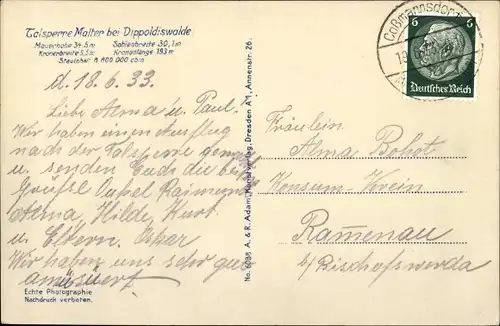 Talsperre Malter bei Dippoldiswalde
Mauerhöhe 34,5 m Sohlenbreite 30,1 m
Kronenbreite 5,5 m Kronenlänge 193 m
Stauinhalt 8 800 000 cbm
d. 18.6.33.
Liebe Alma u. Paul.
Wir haben einen Ausflug
nach der Talsperre gemacht
u. senden Euch die besten
Grüße Onkel Raimund
Alma, Hilde, Kurt
u. Eltern. Oskar
Wir haben uns sehr gut
amüsiert
Echte Photographie
Nachdruck verboten.
No. A. & R. Adam, Kunstverlag, Dresden A 1, Annenstr. 26.
Coßmannsdorf
6 6
Deutsches Reich
Fräulein
Alma
Konsum-Verein
Rammenau
b/ Bischofswerda